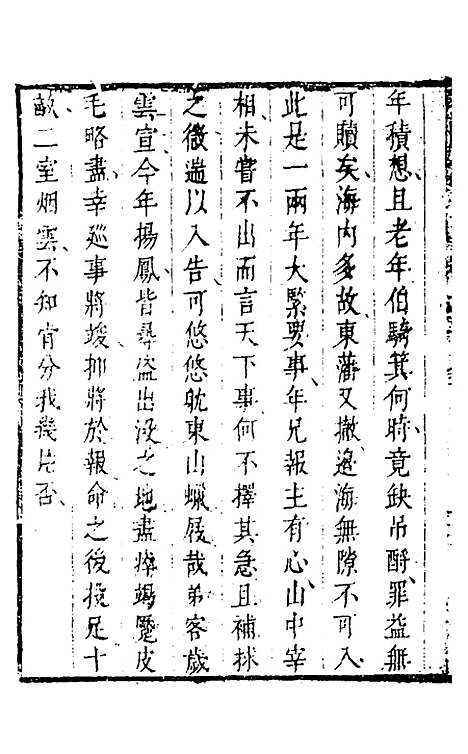 年積想且老年伯騎箕何時竟缺吊酹罪益無
可贖矣海内多故東藩又撤邉海無隙不可入
此是一兩年大緊要事年兄報主有心山中宰
相未嘗不出而言天下事何不擇其急且補捄
之微遄以入告可悠悠躭東山蠟屐哉弟客歳
雲宣今年揚鳳皆㝷盗出没之地盡瘁竭蹷皮
毛略盡幸廵事將竣抑將於報命之後投足十
畝二室烟雲不知肯分我幾片否